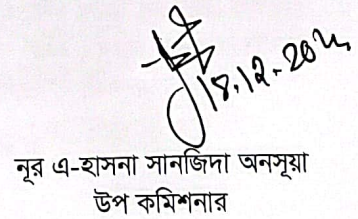 18.12.202
নূর এ-হাসনা সানজিদা অনসূয়া
উপ কমিশনার